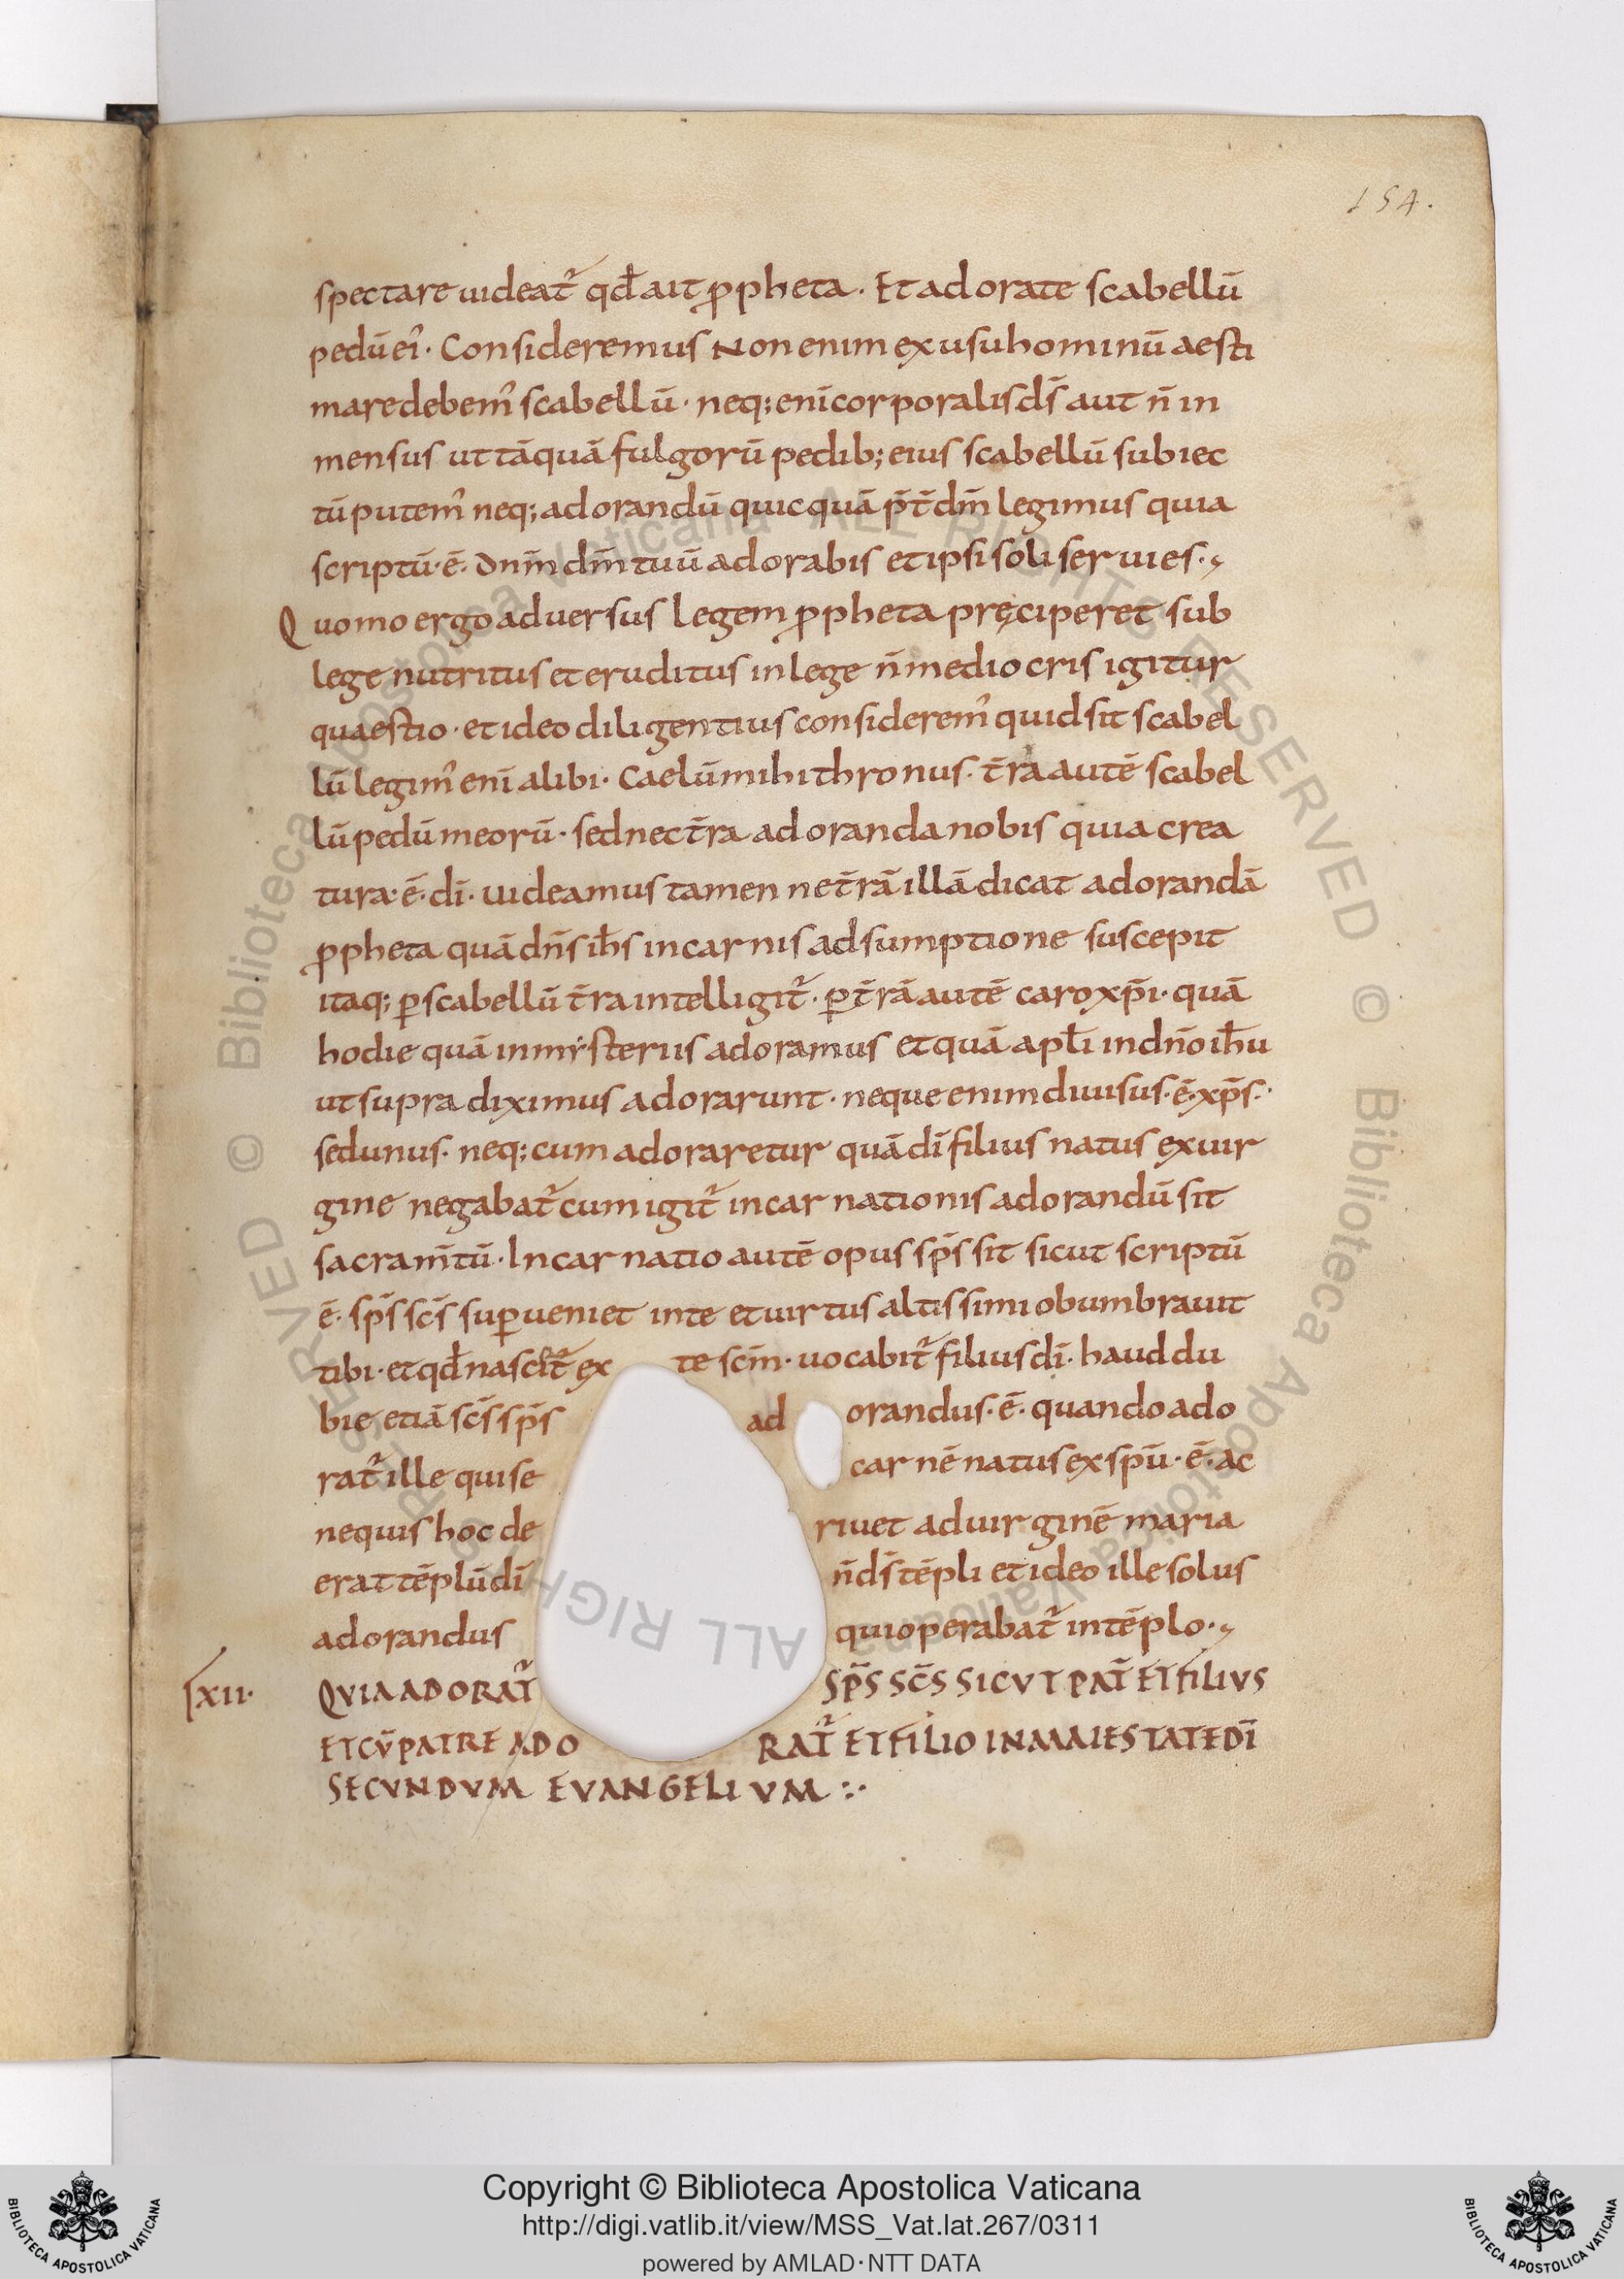 154.
spectare uideat̃ qđ ait ꝓpheta. Et adorate scabellū
pedū ei᾽. Consideremus Non enim ex usu hominū aesti
mare debem᾽ scabellū. neq; enī corporalis d̄s aut n̄ in
mensus ut tāquā fulgorū pedib; eius scabellū subiec
tū putem᾽ neq; adorandū quicquā p̄t̄ dm̄ legimus quia
scriptū. ē. Dnm̄ dm̄ tuū adorabis et ipsi soli seruies.,
Quomo ergo aduersus legem ꝓpheta pręciperet sub
lege nutritus et eruditus in lege n̄ mediocris igitur
quaestio. et ideo diligentius considerem᾽ quid sit scabel
lū legim᾽ enī alibi. Caelū mihi thronus. t̄ra autē scabel
lū pedū meorū. sed nec t̄ra adoranda nobis quia crea
tura. ē. dī. Uideamus tamen ne t̄rā illā dicat adorandā
ꝓpheta quā dn̄s ih̄s in carnis adsumptione suscepit
itaq; ꝑ scabellū t̄ra intelligit̃. ꝑ t̄rā autē caro xp̄i. quā
hodie quā in mẏsteriis adoramus et quā apłi in dn̄o ih̄u
ut supra diximus adorarunt. neque enim diuisus. ē. xp̄s.
sed unus. neq; cum adoraretur quā dī filius natus ex uir
gine negabat̃ cum igit̃ incarnationis adorandū sit
sacram̄tū. Incarnatio autē opus sp̄s sit sicut scriptū
ē. sp̄s sc̄s suꝑueniet in te et uirtus altissimi obumbrauit
tibi. et qđ nascit̃ ex te scm̄. uocabit̃ filius dī. haud du
bie etiā sc̄s sp̄s adorandus. ē. quando ado
rat̃ ille qui se carnē natus ex spū. ē. ac
nequis hoc deriuet ad uirginē maria
erat tēplū dī n̄ d̄s tēpli et ideo ille solus
adorandus qui operabat̃ in tēplo.,
lxii. QUIA ADORAT̃ SP̄S SC̄S SICUT PAT̄ ET FILIUS
ET CŪ PATRE ADORAT̃ ET FILIO IN MAIESTATE DĪ
SECUNDUM EUANGELIUM :.
© Biblioteca Apostolica Vaticana ALL RIGHTS RESERVED © Biblioteca Apostolica Vaticana ALL RIGHTS RESERVED
Copyright © Biblioteca Apostolica Vaticana
http://digi.vatlib.it/view/MSS_Vat.lat.267/0311
powered by AMLAD · NTT DATA
BIBLIOTECA APOSTOLICA VATICANA
BIBLIOTECA APOSTOLICA VATICANA